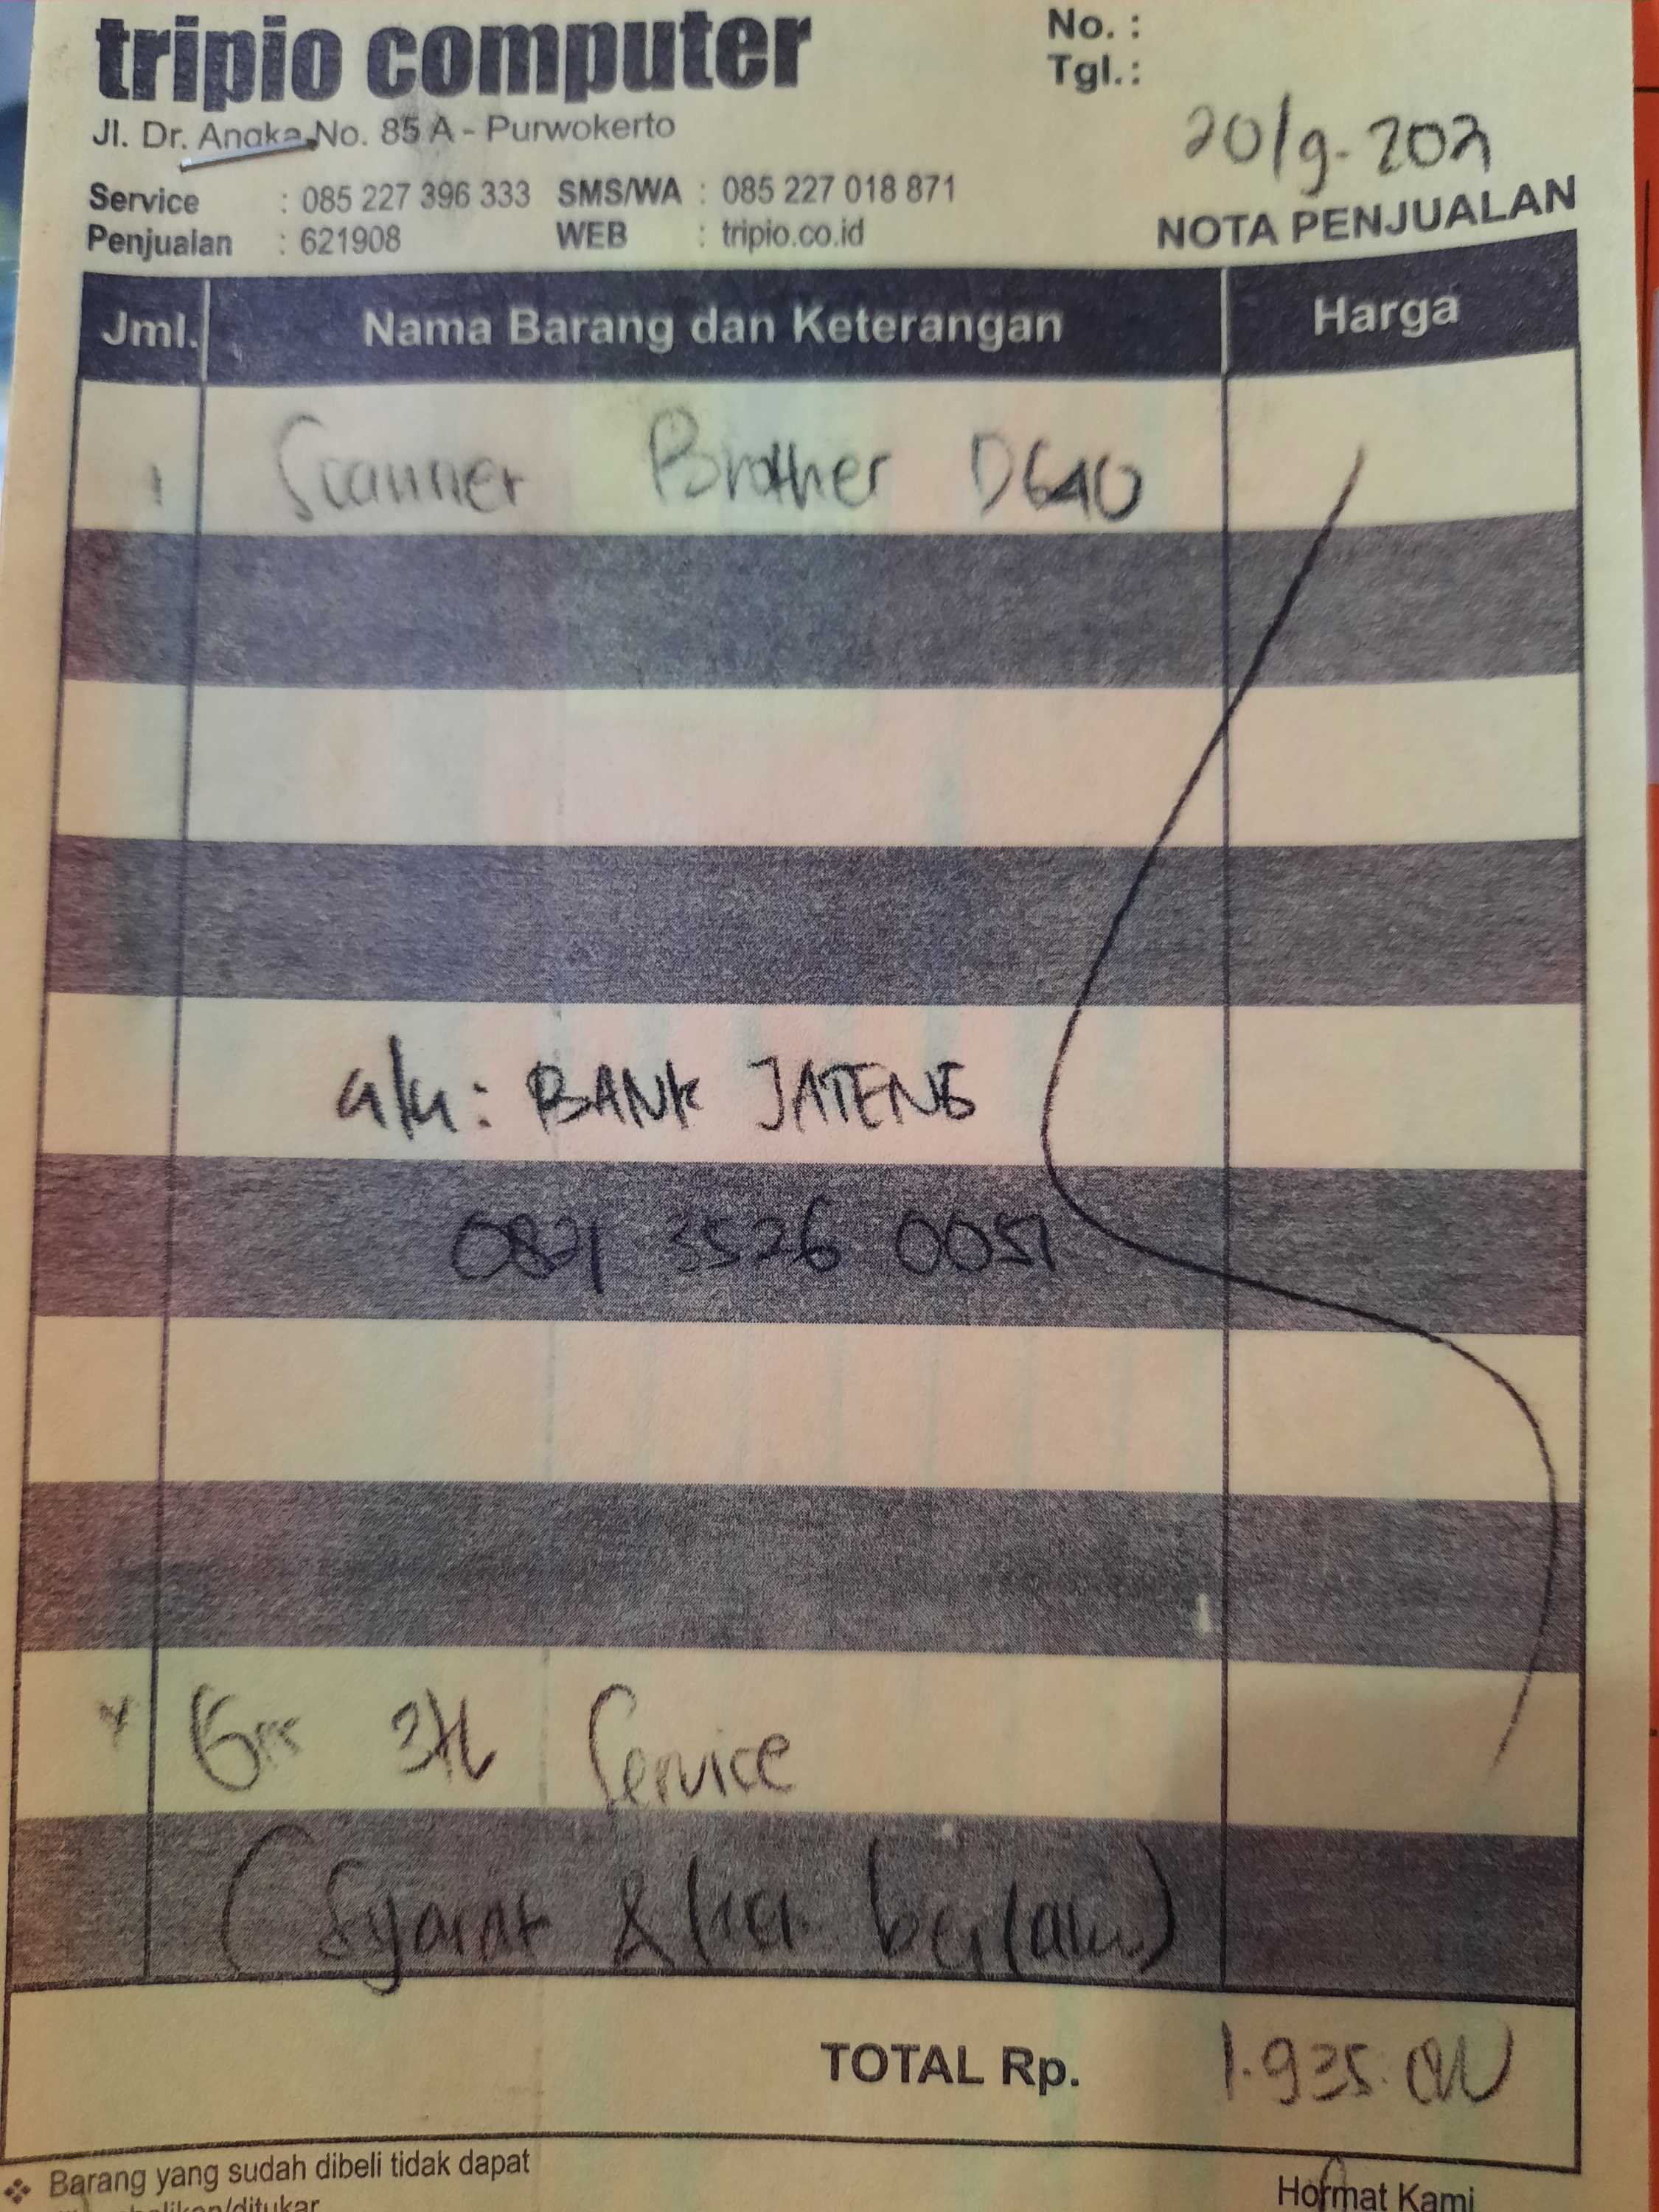 tripio computer
No. :
Tgl. :
Jl. Dr. Angka No. 85 A - Purwokerto
20/9-202
Service : 085 227 396 333 SMS/WA : 085 227 018 871
Penjualan : 621908 WEB : tripio.co.id
NOTA PENJUALAN
Jml. Nama Barang dan Keterangan Harga
1 Scanner Brother D640
a/n: BANK JATENG
0821 3526 0051
Service
(Syarat & ket. berlaku)
TOTAL Rp. 1.935.000
Barang yang sudah dibeli tidak dapat
Hormat Kami